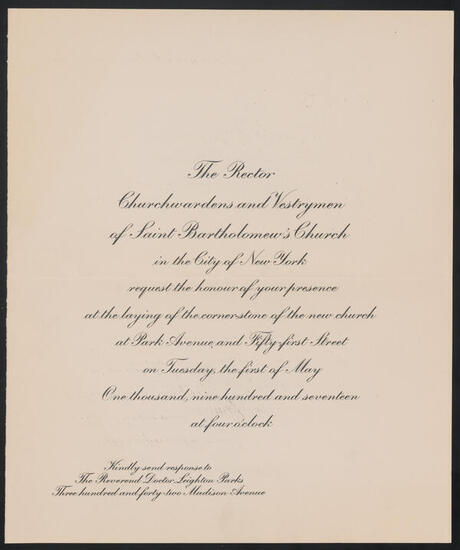 The Rector
Churchwardens and Vestrymen
of Saint Bartholomew's Church
in the City of New York
request the honour of your presence
at the laying of the corner-stone of the new church
at Park Avenue and Fifty-first Street
on Tuesday, the first of May
One thousand, nine hundred and seventeen
at four o'clock
Kindly send response to
The Reverend Doctor Leighton Parks
Three hundred and forty-two Madison Avenue